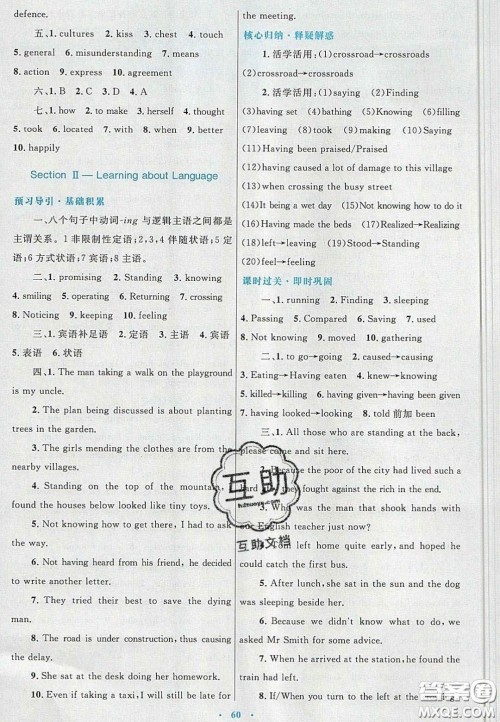 defence.
五、1. cultures 2. kisses 3. chest 4. touch
5. general 6. misunderstanding 7. means
8. action 9. express 10. agreement
六、1. B 2. A 3. B 4. D 5. C
七、1. how 2. to make 3. herself 4. thought
5. took 6. located 7. with 8. when 9. better
10. happily
Section Ⅱ—Learning about Language
预习导引·基础积累
一、八个句子中动词-ing 与逻辑主语之间都是
主谓关系。1 非限制性定语;2,3,4 伴随状语;5 定
语;6 方式状语;7 宾语;8 主语。
二、1. promising 2. Standing 3. knowing
4. smiling 5. operating 6. Returning 7. crossing
8. Noticing 9. keeping 10. feeling
三、1. 宾语补足语 2. 定语 3. 主语 4. 宾语
5. 表语 6. 状语
四、1. The man taking a walk on the playground
is my uncle.
2. The plan being discussed is about planting
trees in the garden.
3. The girls mending the clothes are from the
nearby villages.
4. Standing on the top of the mountain,
found the houses below looking like tiny toys.
5. Not knowing how to get there, I had to ask
the way.
6. Not having heard from his friend, he decided
to write another letter.
7. They tried their best to save the dying
man.
8. The road is under construction, thus causing
the delay.
9. She sat at the desk doing her homework.
10. Even if taking a taxi, I will still be late for
the meeting.
核心归纳·释疑解惑
1. 活学活用:(1)crossroad→crossroads
(2)crossroad→crossroads
2. 活学活用:(1)saying (2)Finding
(3)having set (4)having bought (5)Knowing (6)filling
(7)getting (8)having (9)making (10)Saying
(11)Having been praised/Praised
(12)having caused a lot of damage to this village
(13)when crossing the busy street
(14)It being a wet day (15)Not knowing what to do it
(16)made→making (17)Realized→Realizing
(18)left→leaving (19)having→have
(20)feel→feeling
课时过关·即时巩固
一、1. running 2. Finding 3. sleeping
4. Passing 5. Compared 6. Saving 7. used
8. Not knowing 9. moved 10. gathering
二、1. to go→going 2. caused→causing
3. Eating→Having eaten 4. knew→knowing
5. killed→killing 6. giving→having been given
7. having looked→looking 8. told 前加 been
三、1. All those who are standing at the back,
please come and sit here.
2. Because the poor of the city had lived such a
hard they fought against the rich in the end.
3. Who was the man that shook hands with
our English teacher just now?
4. Tom left home quite early, and hoped he
could catch the first bus.
5. After lunch, she sat in the sun and the dog
was sleeping beside her.
6. Because we didn't know what to do, we
asked Mr Smith for some advice.
7. When he arrived at the station, he found the
train had left.
8. If/When you turn to the left at the
· 60 ·
互助
互助文档
答案圈
MXQE.COM